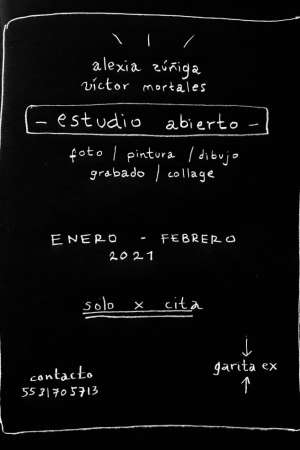 alexia zúñiga
víctor mortales
- estudio abierto -
foto / pintura / dibujo
grabado / collage
ENERO - FEBRERO
2021
solo x cita
garita ex
contacto
5531705713